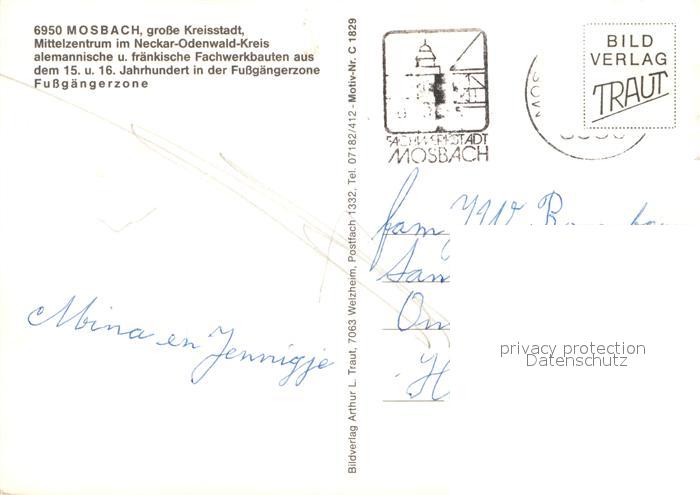 6950 MOSBACH, große Kreisstadt,
Mittelzentrum im Neckar-Odenwald-Kreis
alemannische u. fränkische Fachwerkbauten aus
dem 15. u. 16. Jahrhundert in der Fußgängerzone
Fußgängerzone
Mina en Jennigje
Bildverlag Arthur L. Traut, 7063 Welzheim, Postfach 1332, Tel. 07182/412 - Motiv-Nr. C 1829
FACHWERKSTADT
MOSBACH
MOS
BILD
VERLAG
TRAUT
fam
San
On
H
privacy protection
Datenschutz